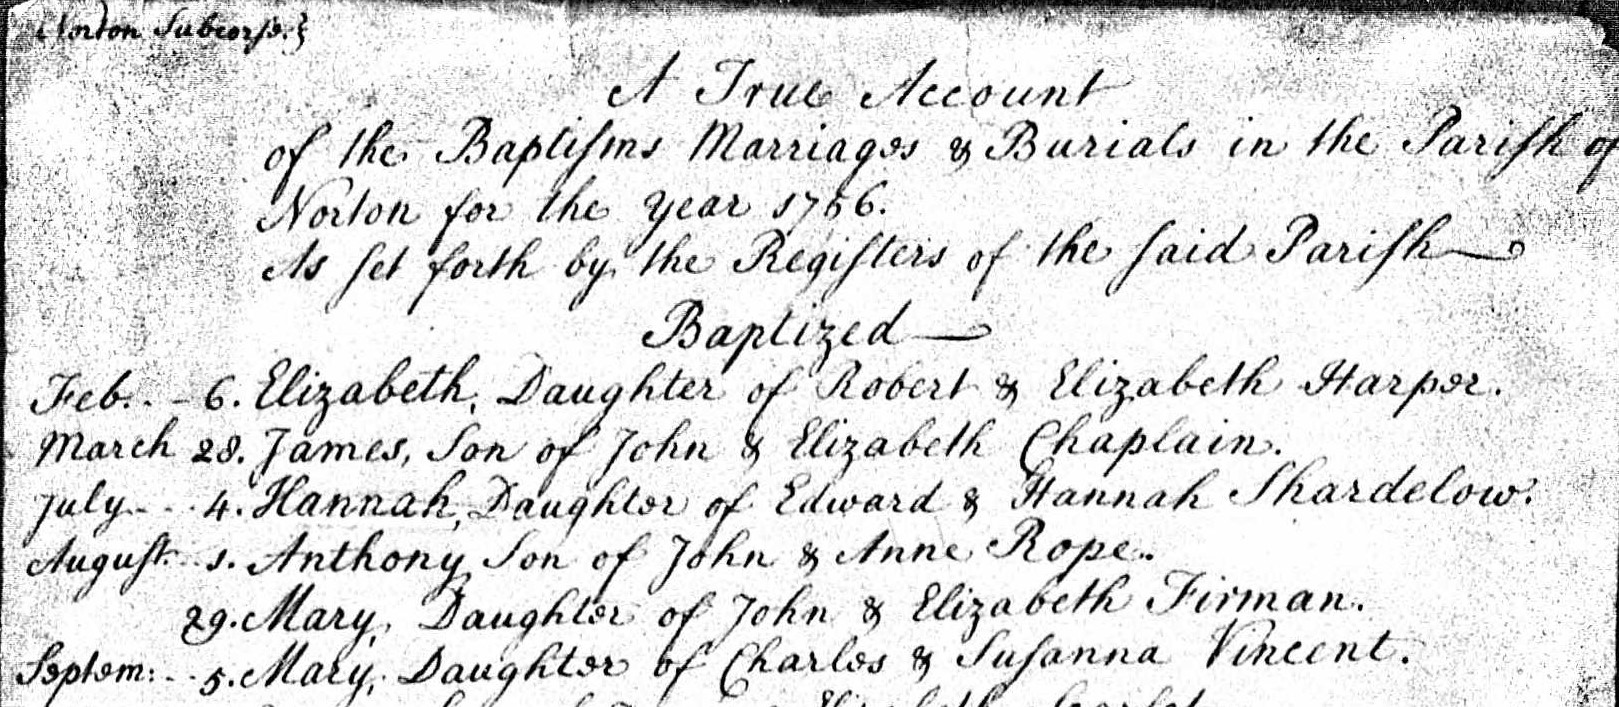 Norton Subcorse.}
A True Account
of the Baptiſms Marriages & Burials in the Pariſh of
Norton for the year 1756.
As ſet forth by the Regiſters of the ſaid Pariſh
Baptized
Feb. - - 6. Elizabeth, Daughter of Robert & Elizabeth Harper.
March 28. James, Son of John & Elizabeth Chaplain.
July - - - 4. Hannah, Daughter of Edward & Hannah Shardelow.
Auguſt. - - 1. Anthony Son of John & Anne Rope.
29. Mary, Daughter of John & Elizabeth Firman.
Septem: - - 5. Mary, Daughter of Charles & Suſanna Vincent.